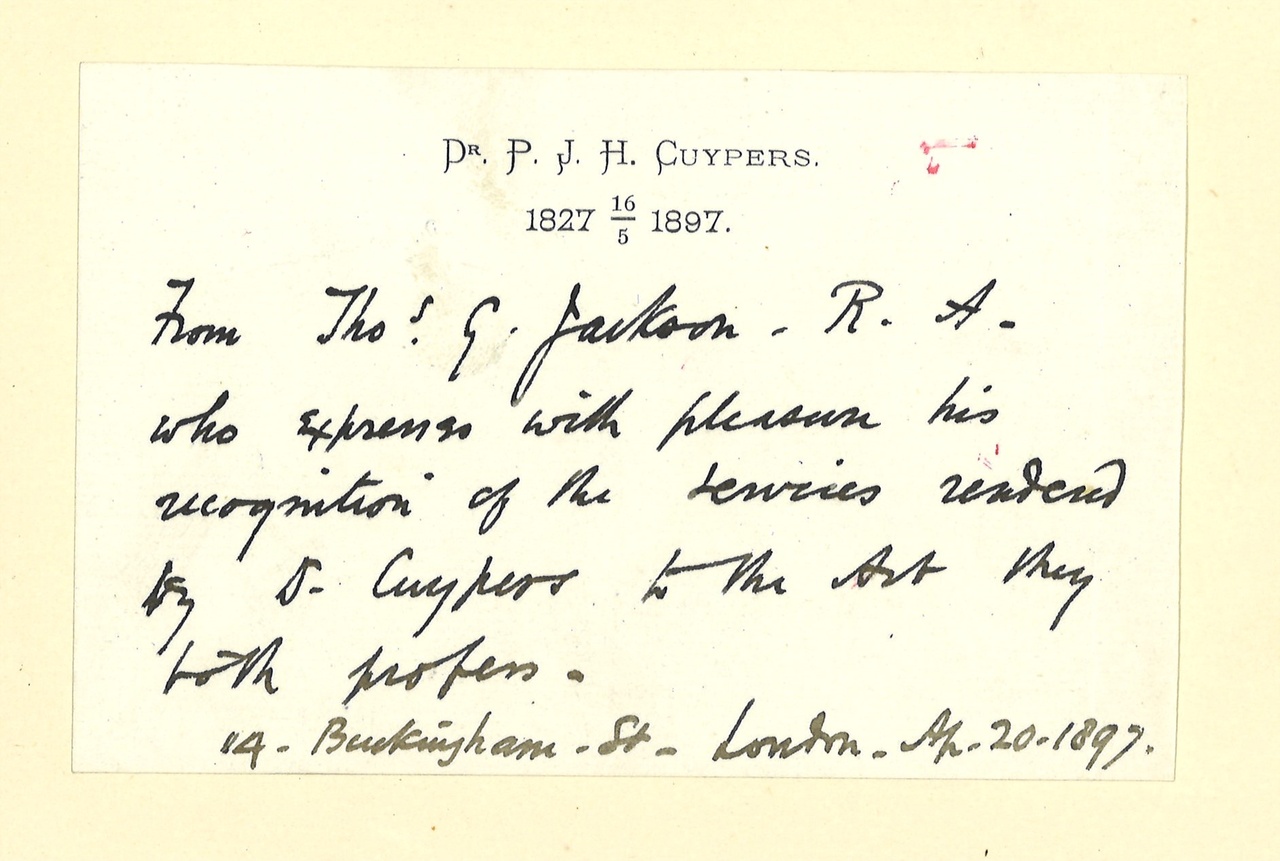 DR. P. J. H. CUYPERS.
1827 16/5 1897.
From Thos. G. Jackson - R. A -
who expresses with pleasure his
recognition of the services rendered
by D. Cuypers to the Art they
both profess -
14 - Buckingham - St - London - Ap - 20 - 1897.